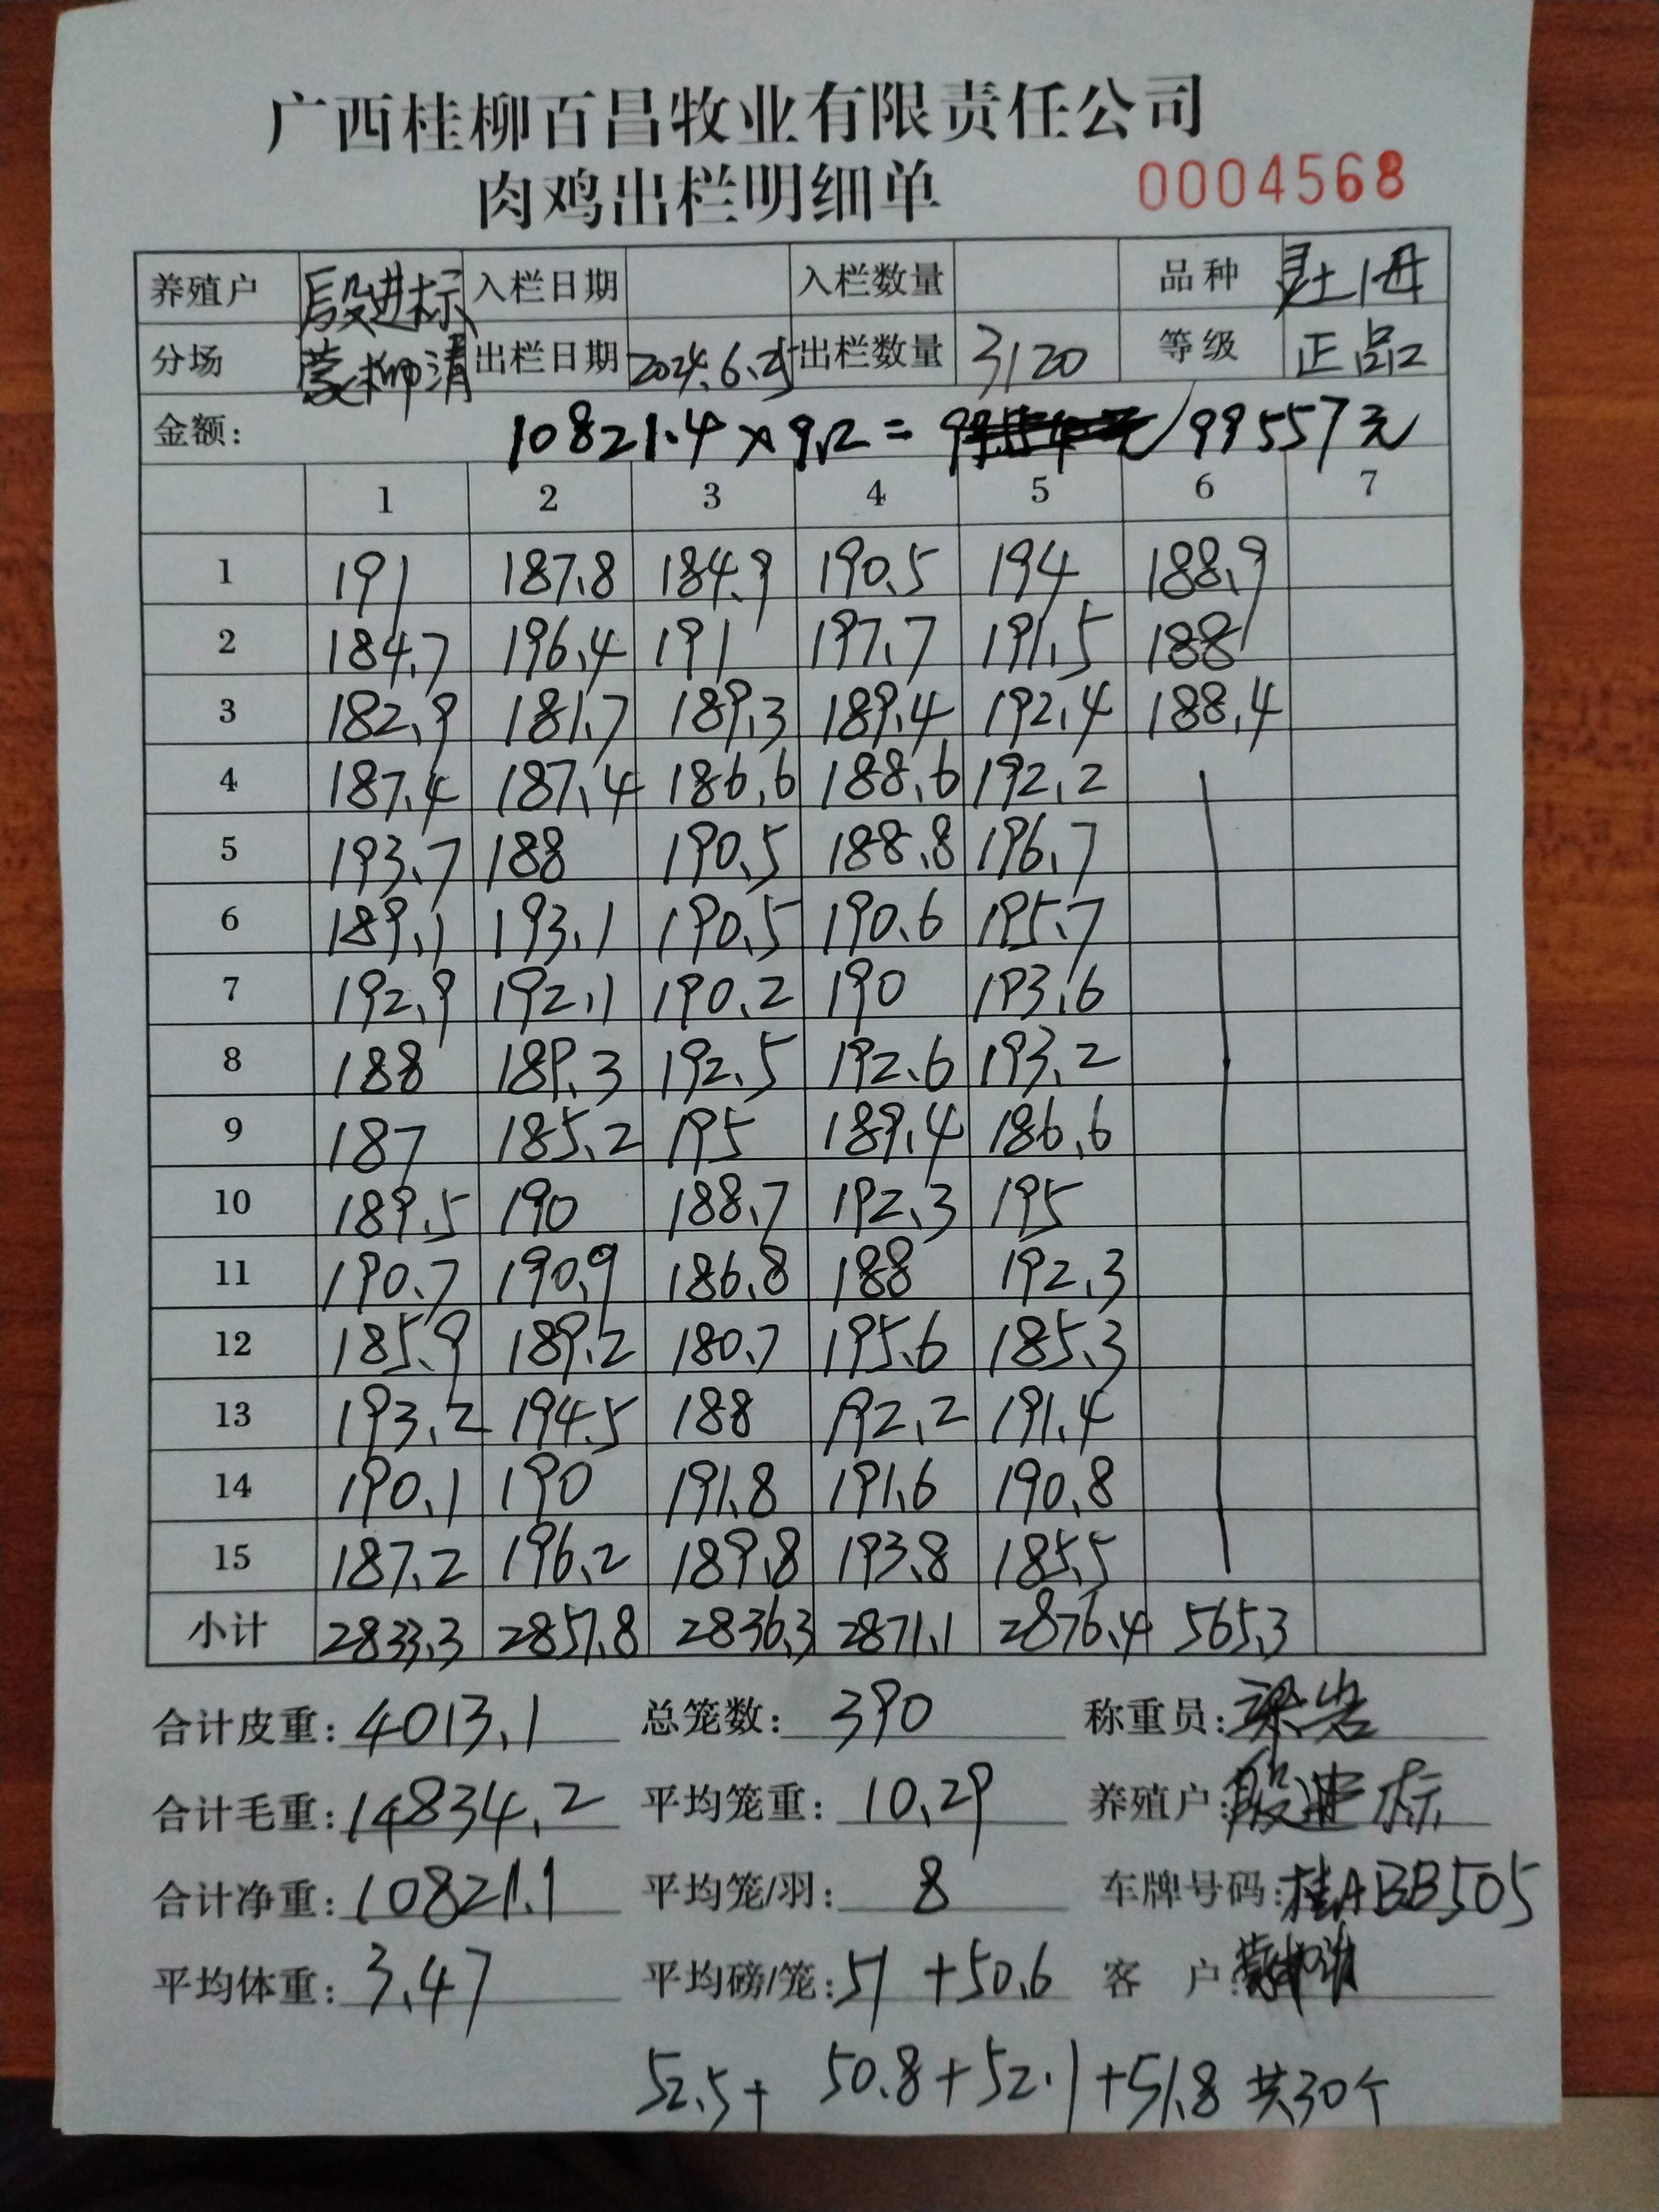 广西桂柳百昌牧业有限责任公司
肉鸡出栏明细单 0004568
养殖户 段进标 入栏日期 入栏数量 品种 土1母
分场 蒙柳清 出栏日期 2024.6.25 出栏数量 3120 等级 正品
金额: 10821.4×9.2= 99557元
1 2 3 4 5 6 7
1 191 187.8 184.9 190.5 194 188.9
2 184.7 196.4 191 197.7 191.5 188
3 182.9 181.7 189.3 189.4 192.4 188.4
4 187.4 187.4 186.6 188.6 192.2
5 193.7 188 190.5 188.8 196.7
6 189.1 193.1 190.5 190.6 195.7
7 192.9 192.1 190.2 190 193.6
8 188 189.3 192.5 192.6 193.2
9 187 185.2 195 189.4 186.6
10 189.5 190 188.7 192.3 195
11 190.7 190.9 186.8 188 192.3
12 185.9 189.2 180.7 195.6 185.3
13 193.2 194.5 188 192.2 191.4
14 190.1 190 191.8 191.6 190.8
15 187.2 196.2 189.8 193.8 185.5
小计 2833.3 2851.8 2836.3 2871.1 2876.4 565.3
合计皮重: 4013.1 总笼数: 390 称重员:
合计毛重: 14834.2 平均笼重: 10.29 养殖户: 段进标
合计净重: 10821.1 平均笼/羽: 8 车牌号码: 桂ABB505
平均体重: 3.47 平均磅/笼: 51+50.6 客户:
52.5+ 50.8+52.1+51.8 共30个